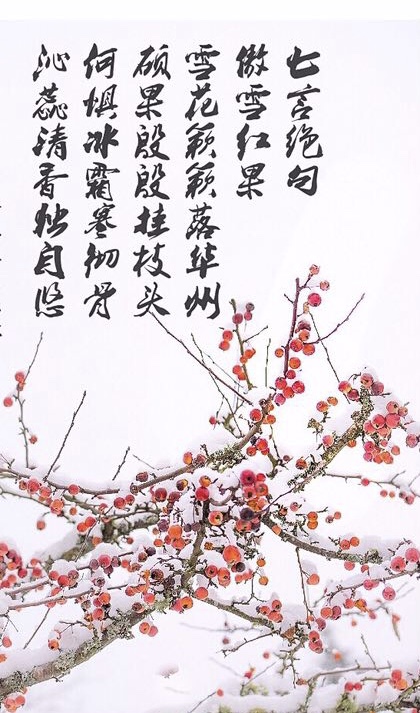 七言绝句
傲雪红果
雪花簌簌落华州
硕果殷殷挂枝头
何惧冰霜寒彻骨
沁蕊清香独自悠